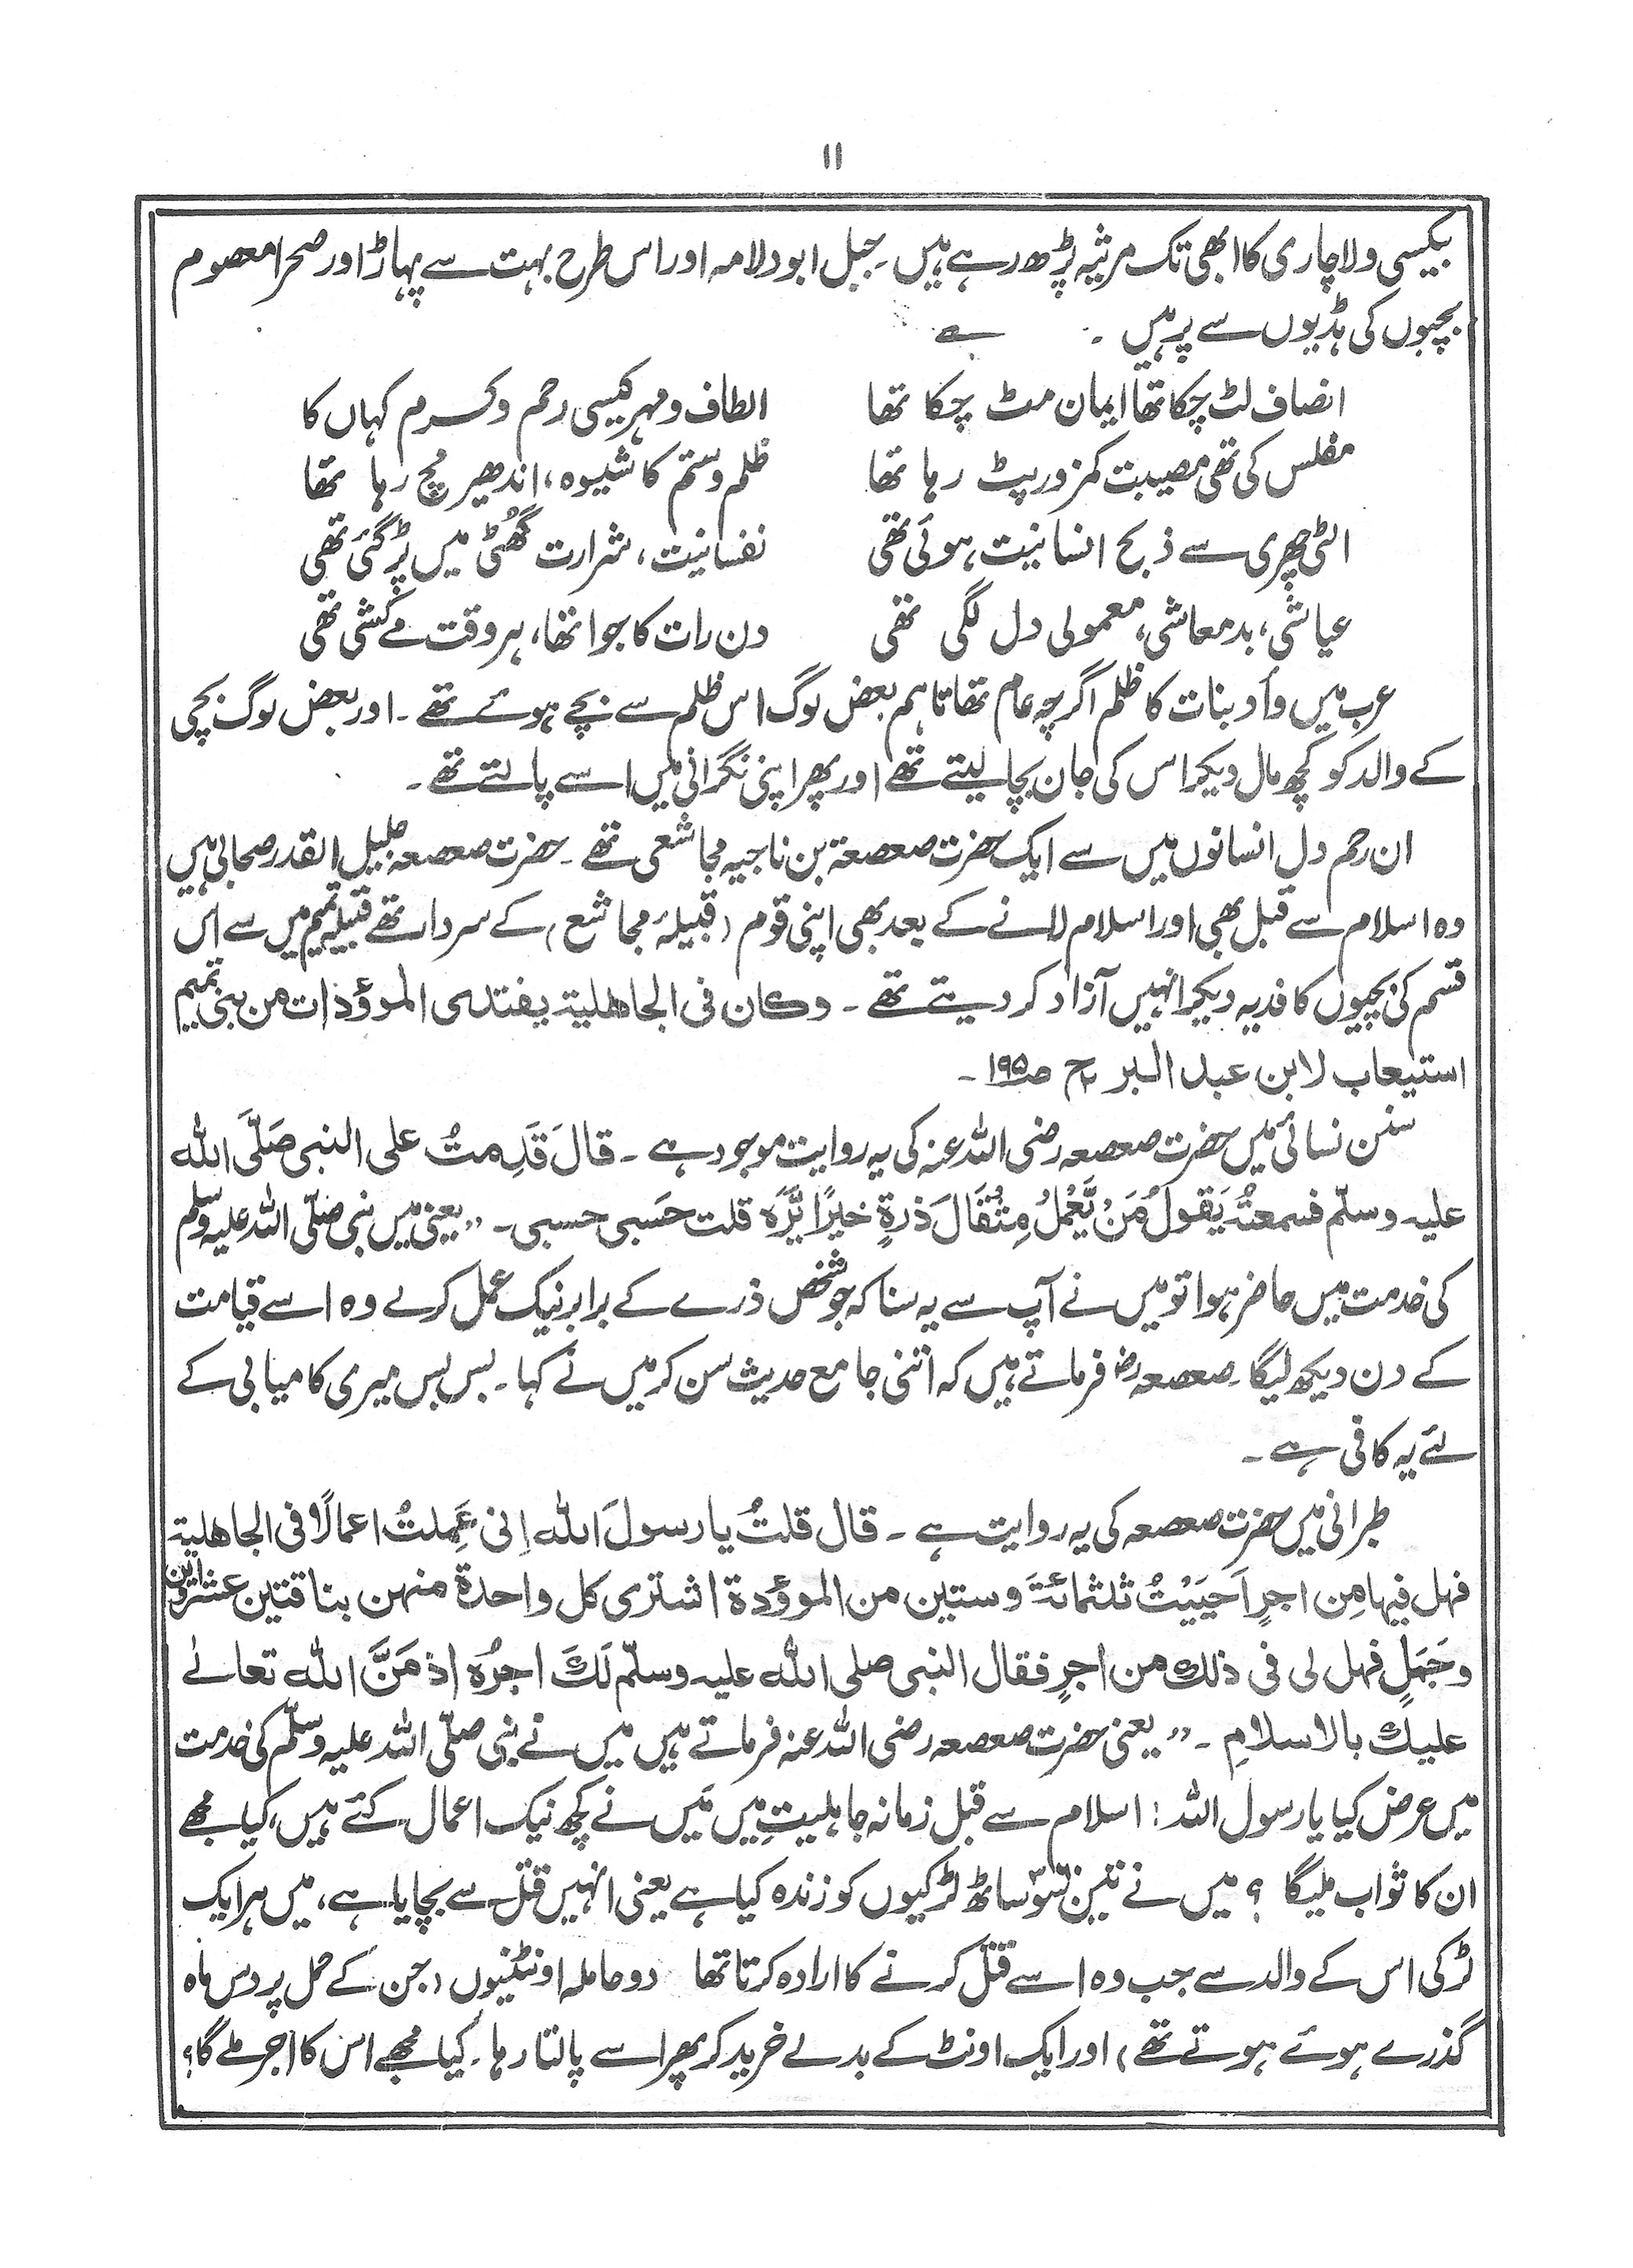 ۱۱
بیکسی ولاچاری کا ابھی تک مرثیہ پڑھ رہے ہیں۔ جبل ابودلامہ اور اس طرح بہت سے پہاڑ اور صحرا معصوم
بچیوں کی ہڈیوں سے پر ہیں ۔
انصاف لٹ چکا تھا ایمان مٹ چکا تھا الطاف ومہر کیسی رحم وکرم کہاں کا
مفلس کی تھی مصیبت کمزور پٹ رہا تھا ظلم وستم کا شیوہ، اندھیر مچ رہا تھا
الٹی چھری سے ذبح انسانیت ہوئی تھی نفسانیت، شرارت گھُٹی میں پڑ گئی تھی
عیاشی، بدمعاشی، معمولی دل لگی تھی دن رات کا جوا تھا، ہر وقت مے کشی تھی
عرب میں وأد بنات کا ظلم اگرچہ عام تھا تاہم بعض لوگ اس ظلم سے بچے ہوئے تھے۔ اور بعض لوگ بچی
کے والد کو کچھ مال دیکر اس کی جان بچا لیتے تھے اور پھر اپنی نگرانی میں اسے پالتے تھے۔
ان رحم دل انسانوں میں سے ایک حضرت صعصعۃ بن ناجیہ مجاشعی تھے۔ حضرت صعصعہ جلیل القدر صحابی ہیں
وہ اسلام سے قبل بھی اور اسلام لانے کے بعد بھی اپنی قوم (قبیلۂ مجاشع) کے سردار تھے قبیلہ تمیم میں سے اس
قسم کی بچیوں کا فدیہ دیکر انہیں آزاد کر دیتے تھے۔ وکان فی الجاھلیۃ یفتدی الموؤدات من بنی تمیم
استیعاب لابن عبد البر ج۲ ص۱۹۵۔
سنن نسائی میں حضرت صعصعہ رضی اللہ عنہ کی یہ روایت موجود ہے۔ قالَ قَدِمتُ علی النبی صَلَّی اللہ
علیہ وسلّم فسمعتُہ یَقولُ مَنْ یَّعْمَلُ مِثْقَالَ ذرةٍ خیرًا یَّرَہ قلت حَسبی حسبی۔ ״یعنی میں نبی صلّی اللہ علیہ وسلم
کی خدمت میں حاضر ہوا تو میں نے آپ سے یہ سنا کہ جو شخص ذرے کے برابر نیک عمل کرلے وہ اسے قیامت
کے دن دیکھ لیگا۔ صعصعہؓ فرماتے ہیں کہ اتنی جامع حدیث سن کر میں نے کہا۔ بس بس میری کامیابی کے
لئے یہ کافی ہے۔
طبرانی میں حضرت صعصعہ کی یہ روایت ہے۔ قال قلتُ یا رسولَ اللہ اِنی عَمِلتُ اعمالًا فی الجاھلیۃ
فہل فیہا مِن اجرٍ اَحیَیْتُ ثلثمائۃَ وستین من الموؤدۃ اشتری کل واحدۃ منہن بناقتین عشراوین
وجَمَلٍ فہل لی فی ذلک من اجرٍ فقال النبی صلی اللہ علیہ وسلّم لَكَ اجرُہ اذ مَنَّ اللہ تعالےٰ
علیك بالاسلامِ۔ ״یعنی حضرت صعصعہ رضی اللہ عنہ فرماتے ہیں میں نے نبی صلّی اللہ علیہ وسلّم کی خدمت
میں عرض کیا یا رسول اللہ! اسلام سے قبل زمانہ جاہلیت میں مَیں نے کچھ نیک اعمال کئے ہیں، کیا مجھے
ان کا ثواب ملیگا ؟ میں نے تین سَوّ ساٹھ لڑکیوں کو زندہ کیا ہے یعنی انہیں قتل سے بچایا ہے، میں ہر ایک
لڑکی اس کے والد سے جب وہ اسے قتل کرنے کا ارادہ کرتا تھا دو حاملہ اونٹنیوں (جن کے حمل پر دس ماہ
گذرے ہوئے ہوتے تھے) اور ایک اونٹ کے بدلے خرید کر پھر اسے پالتا رہا۔ کیا مجھے اس کا اجر ملے گا؟